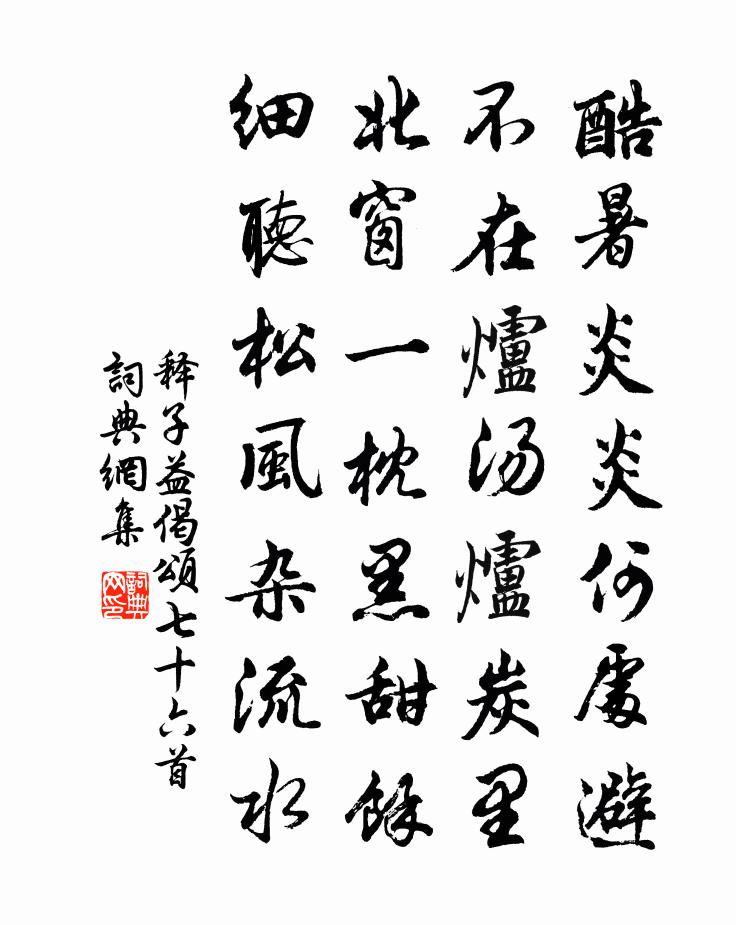 酷暑炎炎何處避
不在爐汤爐炭里
北窗一枕黑甜餘
细聽松風杂流水
释子益偈頌七十六首
詞典網集
詞典网印